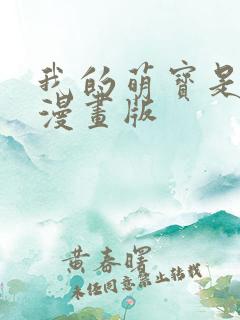 我的萌寶是
漫畫版
黃春曙
未經同意禁止转载